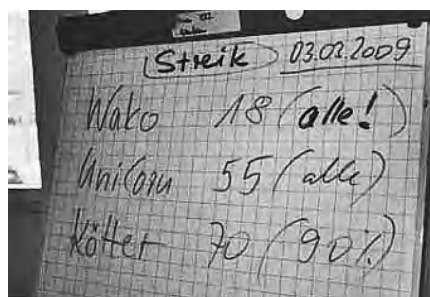 Streik 03.03.2009
Wako 18 (alle!)
Unicorn 55 (alle)
Kötter 70 (90%)